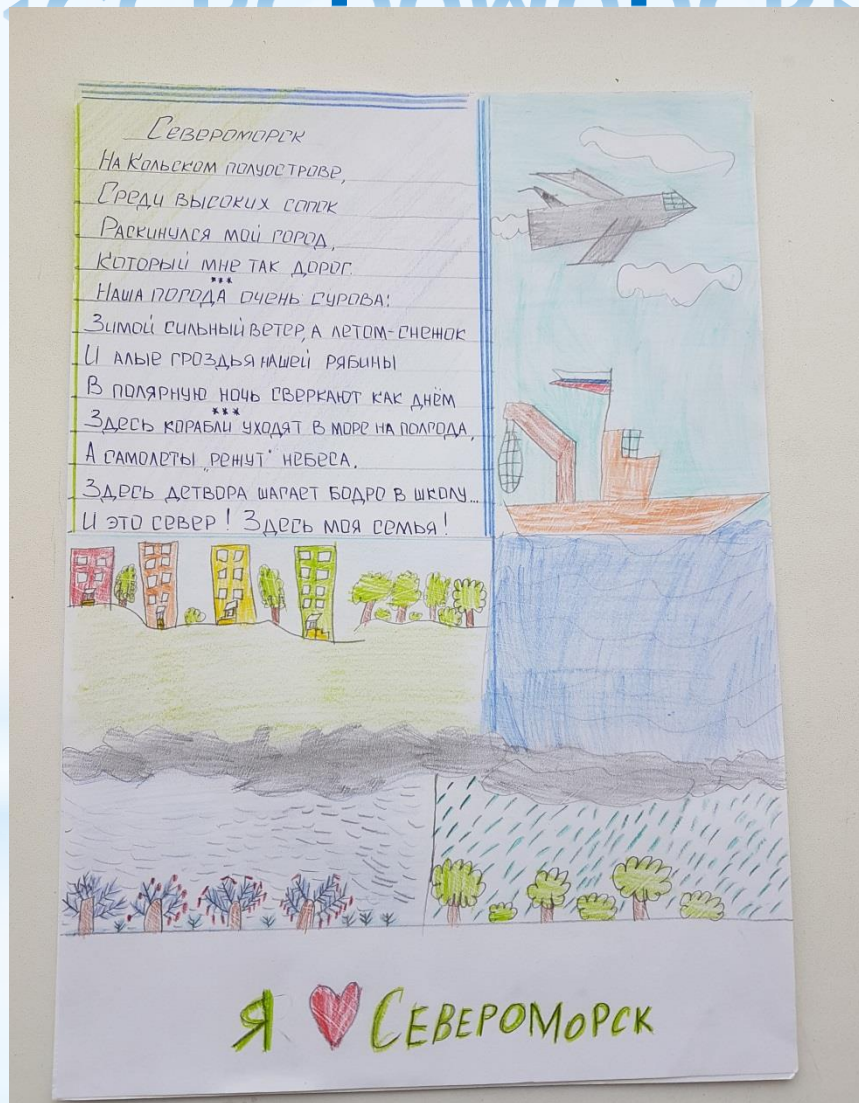 Североморск
На Кольском полуострове,
Среди высоких сопок
Раскинулся мой город,
Который мне так дорог.
***
Наша погода очень сурова:
Зимой сильный ветер, а летом-снежок
И алые гроздья нашей рябины
В полярную ночь сверкают как днём
***
Здесь корабли уходят в море на полгода,
А самолеты "режут" небеса.
Здесь детвора шагает бодро в школу...
И это север! Здесь моя семья!
Я ❤ Североморск